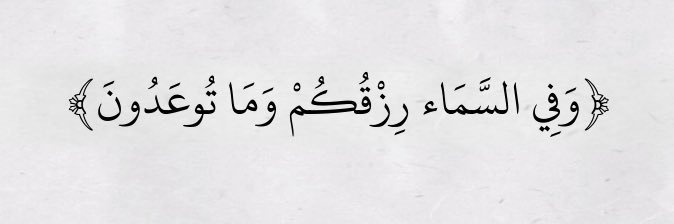 ﴿وَفِي السَّمَاء رِزْقُكُمْ وَمَا تُوعَدُونَ﴾